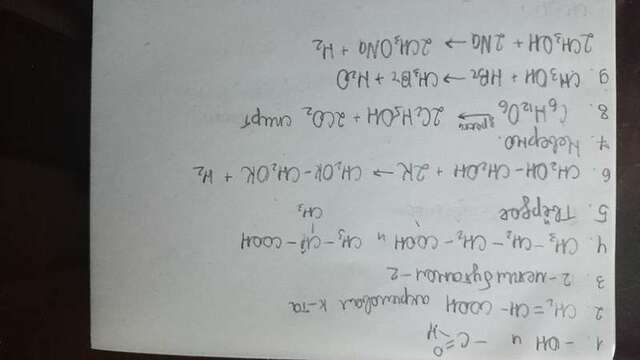 1. -OH и -C=O H
2. CH2=CH-COOH акриловая к-та
3. 2-метилбутанол-2
4. CH3-CH2-CH2-COOH и CH3-CH-COOH
CH3
5. Твёрдое
6. CH2OH-CH2OH + 2K → CH2OK-CH2OK + H2
7. Неверно.
8. C6H12O6 → 2C2H5OH + 2CO2 спирт
9. CH3OH + HBr → CH3Br + H2O
2CH3OH + 2Na → 2CH3ONa + H2